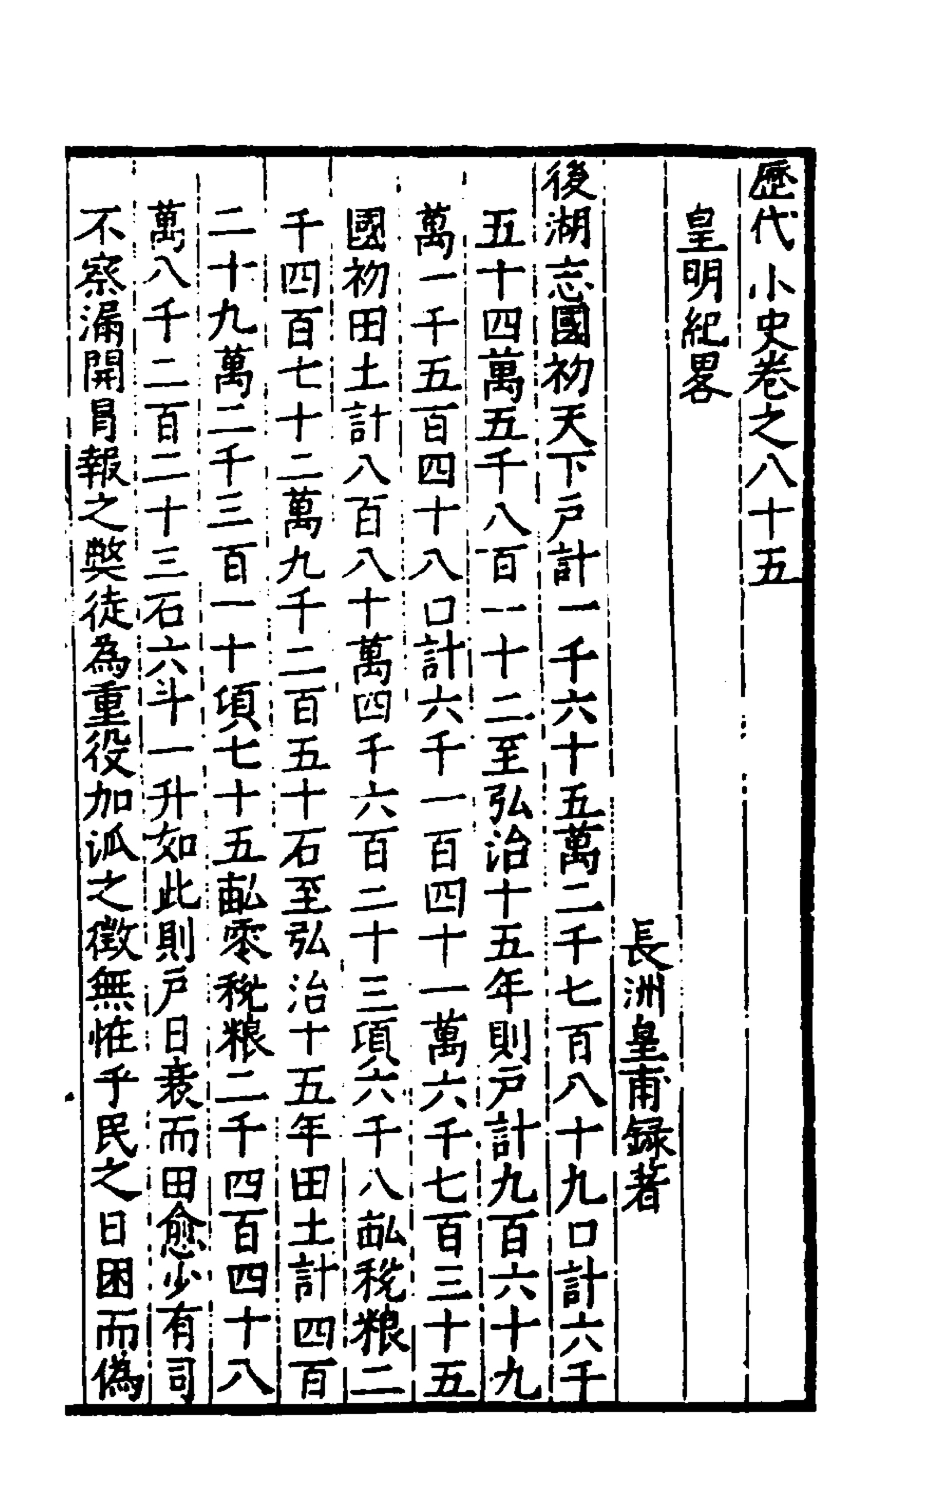 歷代小史卷之八十五
皇明紀畧
長洲皇甫録著
後湖志國初天下戸計一千六十五萬二千七百八十九口計六千
五十四萬五千八百一十二至弘治十五年則戸計九百六十九
萬一千五百四十八口計六千一百四十一萬六千七百三十五
國初田土計八百八十萬四千六百二十三項六千八畝税粮二
千四百七十二萬九千二百五十石至弘治十五年田土計四百
二十九萬二千三百一十項七十五畝零税粮二千四百四十八
萬八千二百二十三石六斗一升如此則戸日衰而田愈少有司
不察漏開冐報之弊徒為重役加泒之徵無恠乎民之日困而偽